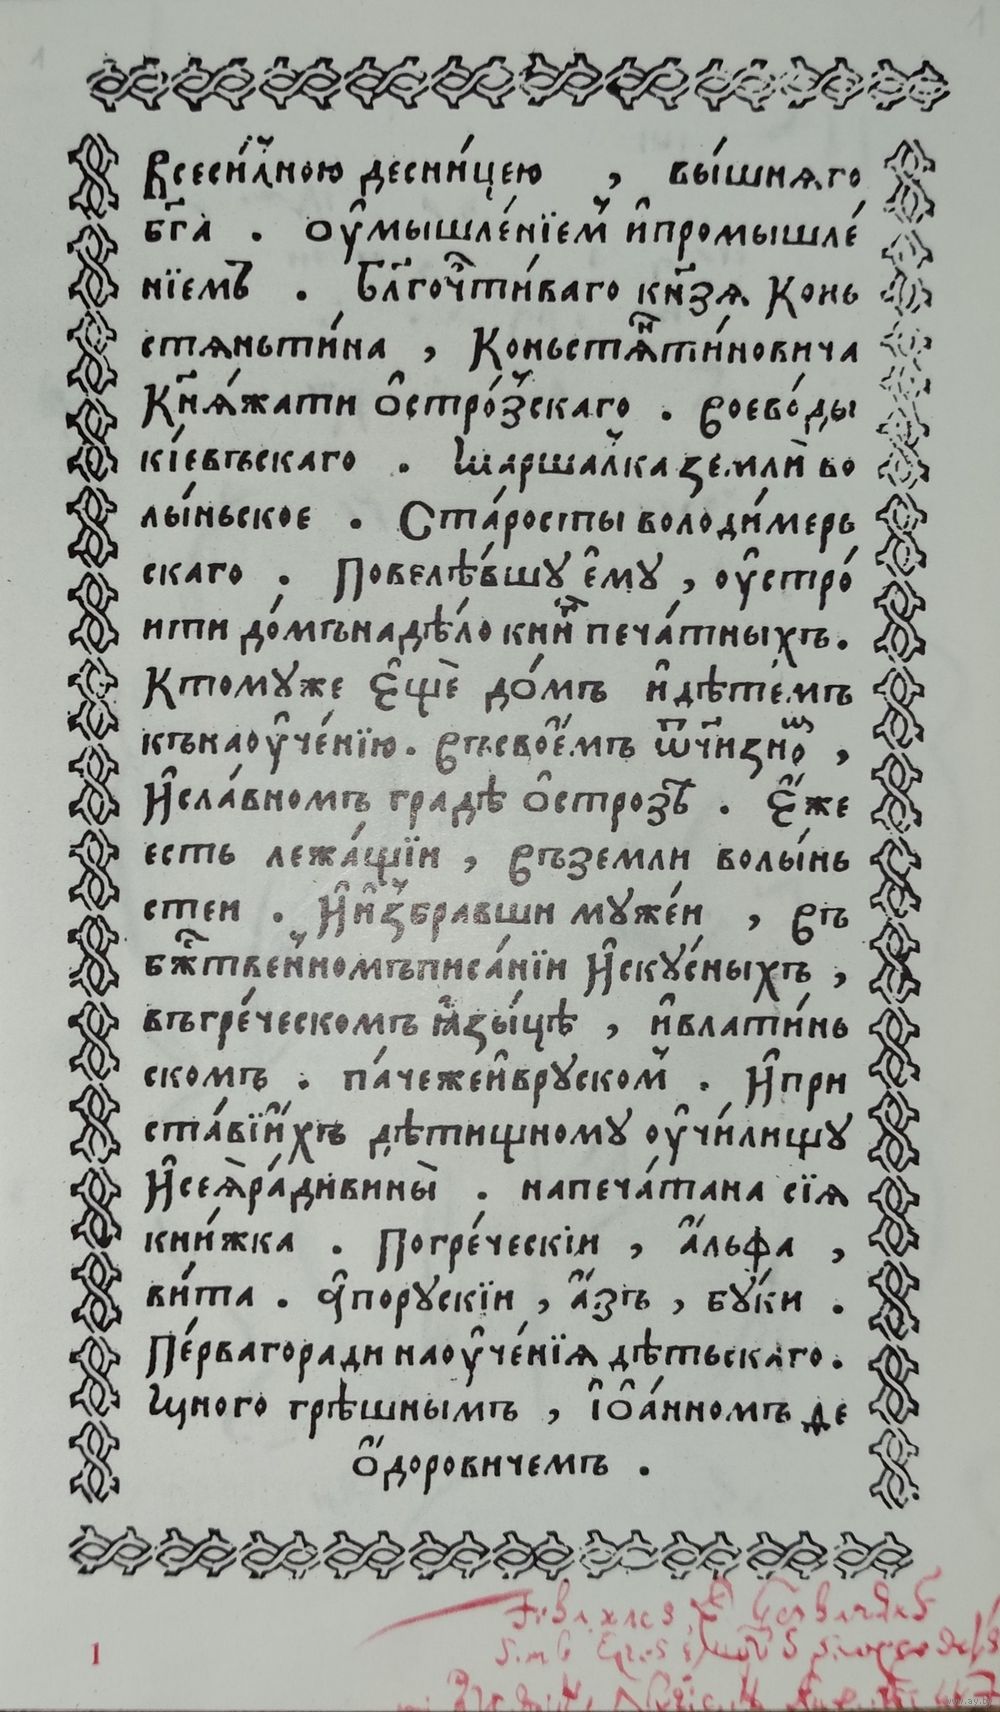 Всеси́лною десни́цею , вы́шнѧго
бг҃а . оу҆мышле́нїем и҆промышле́
нїемъ . бл҃гочⷭ҇ти́ваго кн҃зѧ Конь
стѧньти́на , Коньстѧⷩ҇ти́новича
Кн҃ѧ́жати Ѻ҆стро́зскаго . воево́ды
кі́евъскаго . Шаршалка земли̇̀ во
лы́ньское . Ста́росты володи́мерь
скаго . Повелѣ́вшꙋ є҆мꙋ , оу҆стро́
ити до́мъ надѣ́ло кни́гъ печа́тныхъ .
Ктомꙋже Є҆щѐ до́мъ и҆ дѣте́мъ
къ наоу҆че́нїю . въ свое҆́мъ ѿчи҃зно ,
И҆сла́вномъ градѣ Ѻ҆строзѣ . Є҆́же
есть лежа́щїи , въ земли волы́нь
стеи . И҆и҆збравши мꙋже́и , въ
бж҃твенномъ писа́нїи И҆скꙋ́сныхъ ,
въ гре́ческомъ ꙗ҆зы́цѣ , и҆влати́нь
скомъ . па́чежеи҆врꙋском . И҆при
ста́вїи҆́хъ дѣтищномꙋ оу҆чи́лищꙋ
И҆сеѧ̀ ра́ди вины̀ . напеча́тана сїѧ
кни́жка . Погре́ческіи , а҆́льфа ,
ви́та . и҆порꙋскїи , а҆́зъ , бꙋ́ки .
Пе́рваго ради наоу҆че́нїѧ дѣ́тьскаго .
Много грѣшнымъ , і҆ѻ҆а́нномъ Фе
ѻ҆́доровичемъ .
1